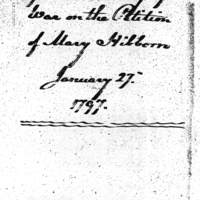 War on the Petition
of Mary Hilborn
January 27
1797.